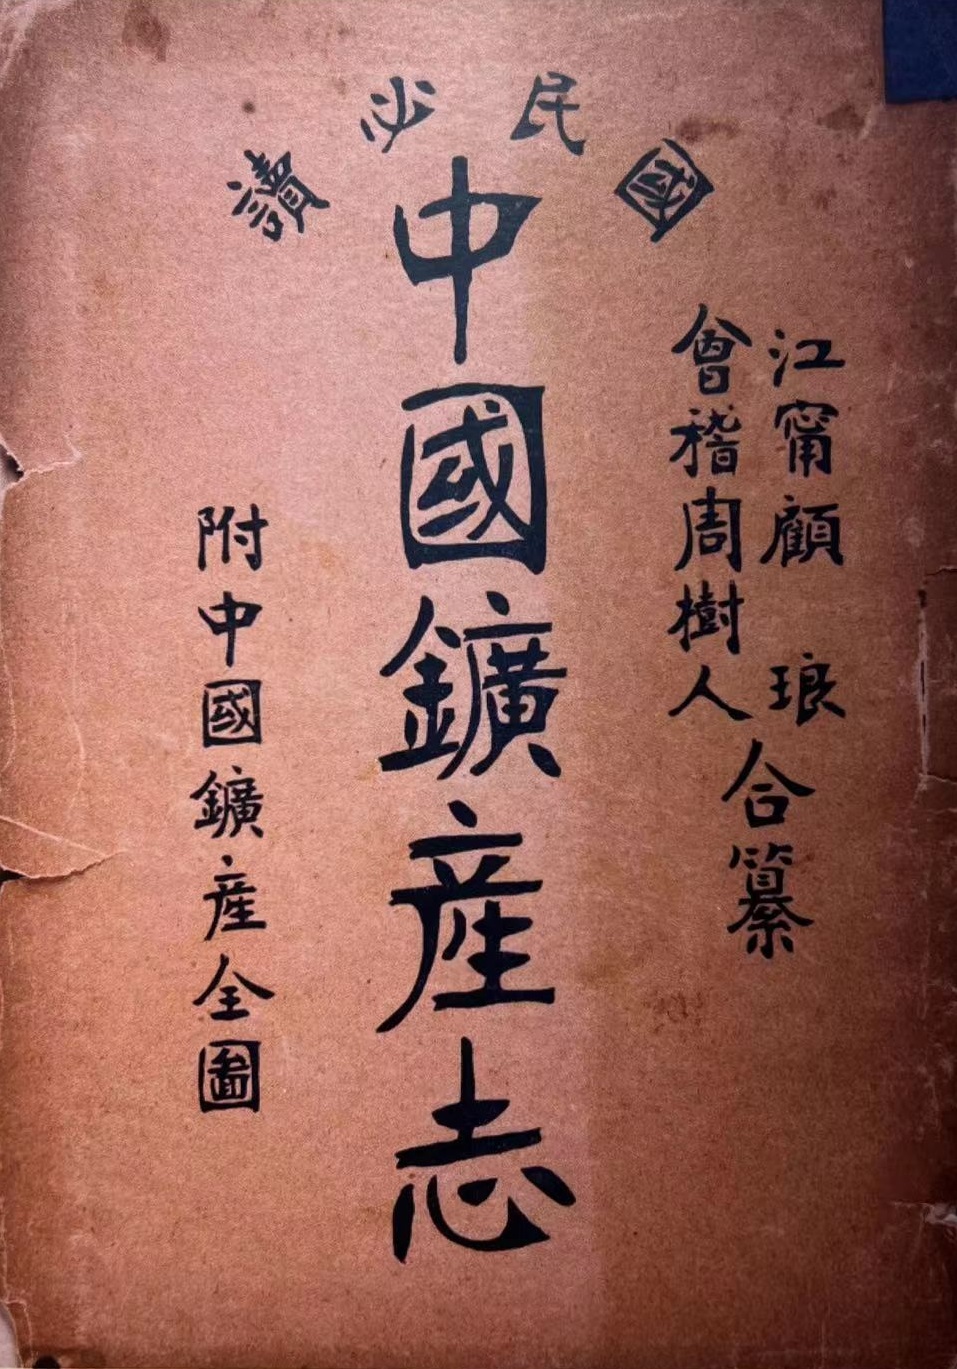 國民必讀
江甯顧 琅
會稽周樹人
合纂
中國鑛産志
附中國鑛産全圖